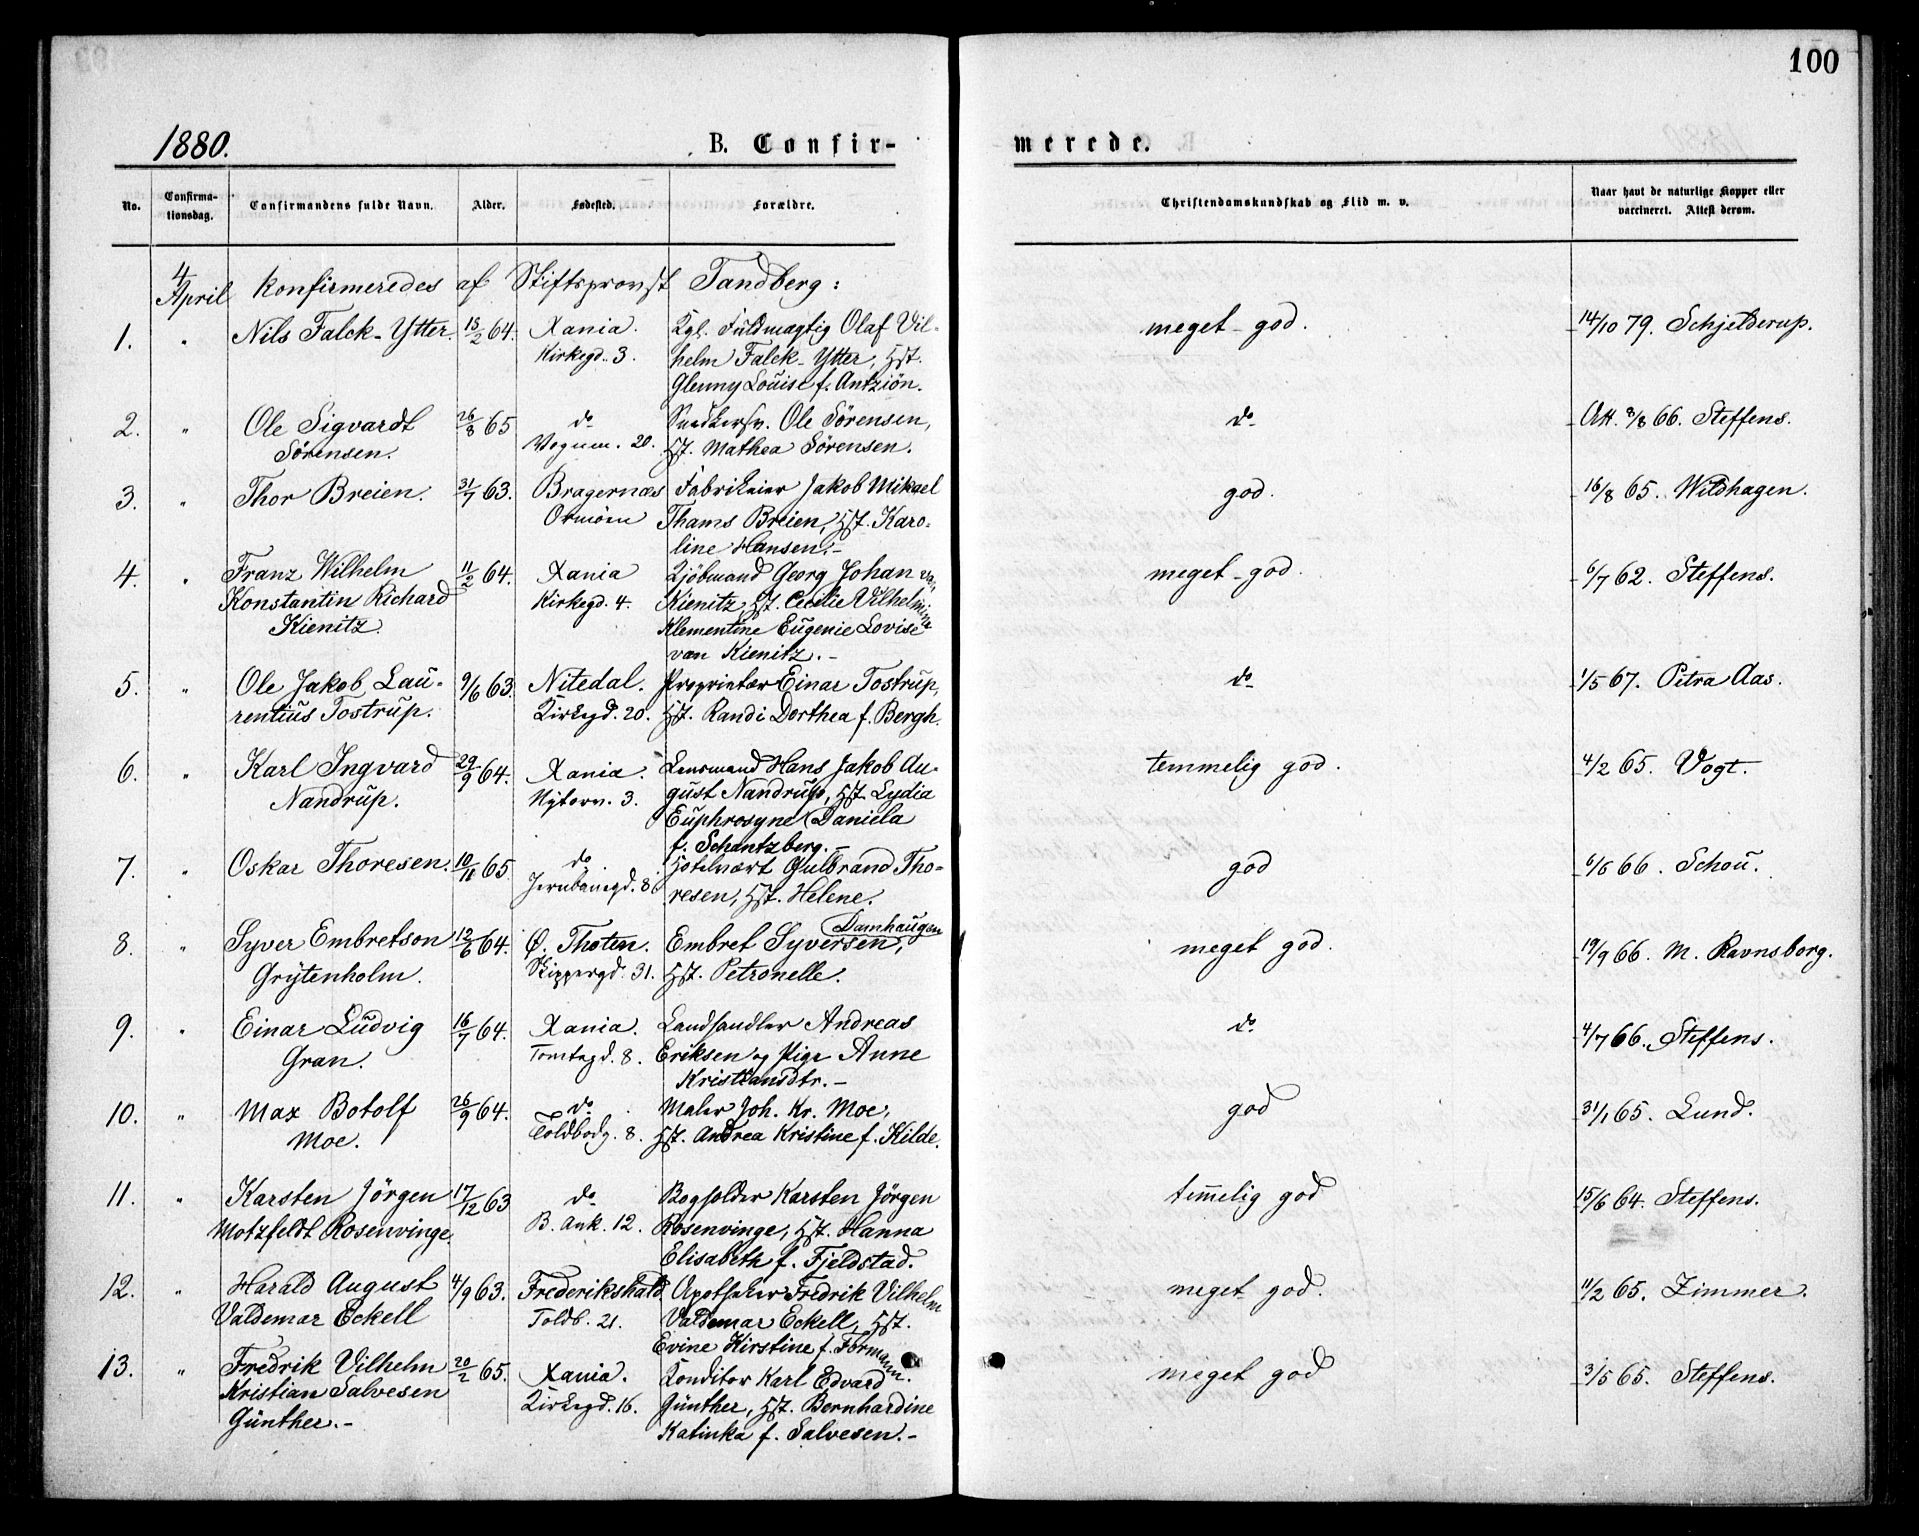 100
1880. B. Confirmerede.
No. Confirmationsdag. Confirmandens fulde Navn. Alder. Fødested. Forældre. Christendomskundskab og Flid m. v. Naar havt de naturlige Kopper eller vaccineret. Attest derom.
4 April konfirmeredes af Stiftsprovst Tandberg:
1. " Nils Falck-Ytter. 13/2 64. Xania. Kgl. Fuldmægtig Olaf Vil- meget god. 14/10 79. Schjelderup.
Kirkegd. 3. helm Falck-Ytter, Hst.
Glenny Louise f. Antziön.
2. " Ole Sigvardt 26/8 65 do Snedkersv. Ole Sörensen, do Att. 8/8 66. Steffens.
Sörensen. Vognm. 20. Hst. Mathea Sörensen.
3. " Thor Breien. 31/7 63. Bragernæs Fabrikeier Jakob Mikael god. 16/8 65. Wildhagen.
Ormöen Thams Breien, Hst. Karo-
line Hansen.-
4. " Franz Wilhelm 11/2 64. Xania Kjöbmand Georg Johan van meget god. 6/7 62. Steffens.
Konstantin Richard Kirkegd. 4. Kienitz, Hst. Cecilie Vilhelmine
Kienitz. Klementine Eugenie Lovise
van Kienitz.-
5. " Ole Jakob Lau- 9/6 63. Nitedal. Proprietær Einar Tostrup, do 1/5 67. Petra Aas.
rentius Tostrup. Kirkegd. 20. Hst. Randi Dorthea f. Bergh.
6. " Karl Ingvard 29/9 64. Xania. Lensmand Hans Jakob Au- temmelig god. 4/2 65. Vogt.
Nandrup. Nytorv. 3. gust Nandrup, Hst. Lydia
Euphrosyne Daniela
f. Schantzberg.-
7. " Oskar Thoresen. 10/11 65. do. Hotelvært Gulbrand Tho- god 6/6 66. Schou.
Jernbanegd. 8 resen, Hst. Helene.
8. " Syver Embretson 12/6 64. Ø. Thoten. Embret Syversen, Damhaugen meget god. 19/9 66. M. Ravnsborg.
Grytenholm. Skippergd. 31. Hst. Petronelle.
9. " Einar Ludvig 16/7 64. Xania. Landhandler Andreas do 4/7 66. Steffens.
Gran. Tomtegd. 8. Eriksen og Pige Anne
Kristiansdtr.-
10. " Max Botolf 26/9 64. do. Maler Joh. Kr. Moe, god 31/1 65. Lund.
Moe. Toldbodg. 8. Hst. Andrea Kristine f. Kilde.
11. " Karsten Jörgen 17/12 63 do Bogholder Karsten Jörgen temelig god 15/6 64. Steffens.
Motzfeldt Rosenvinge. B. Ank. 12. Rosenvinge, Hst. Hanna
Elisabeth f. Fjeldstad.
12. " Harald August 4/9 63. Frederikshald Apotheker Fredrik Vilhelm meget god. 11/2 65. Zimmer.
Valdemar Eckell Toldb. 21. Valdemar Eckell, Hst.
Evine Kirstine f. Formann.
13. " Fredrik Vilhelm 20/2 65. Xania. Konditor Karl Edvard meget god 3/5 65. Steffens.
Kristian Salvesen Kirkegd. 16. Günther, Hst. Bernhardine
Günther.- Katinka f. Salvesen.-